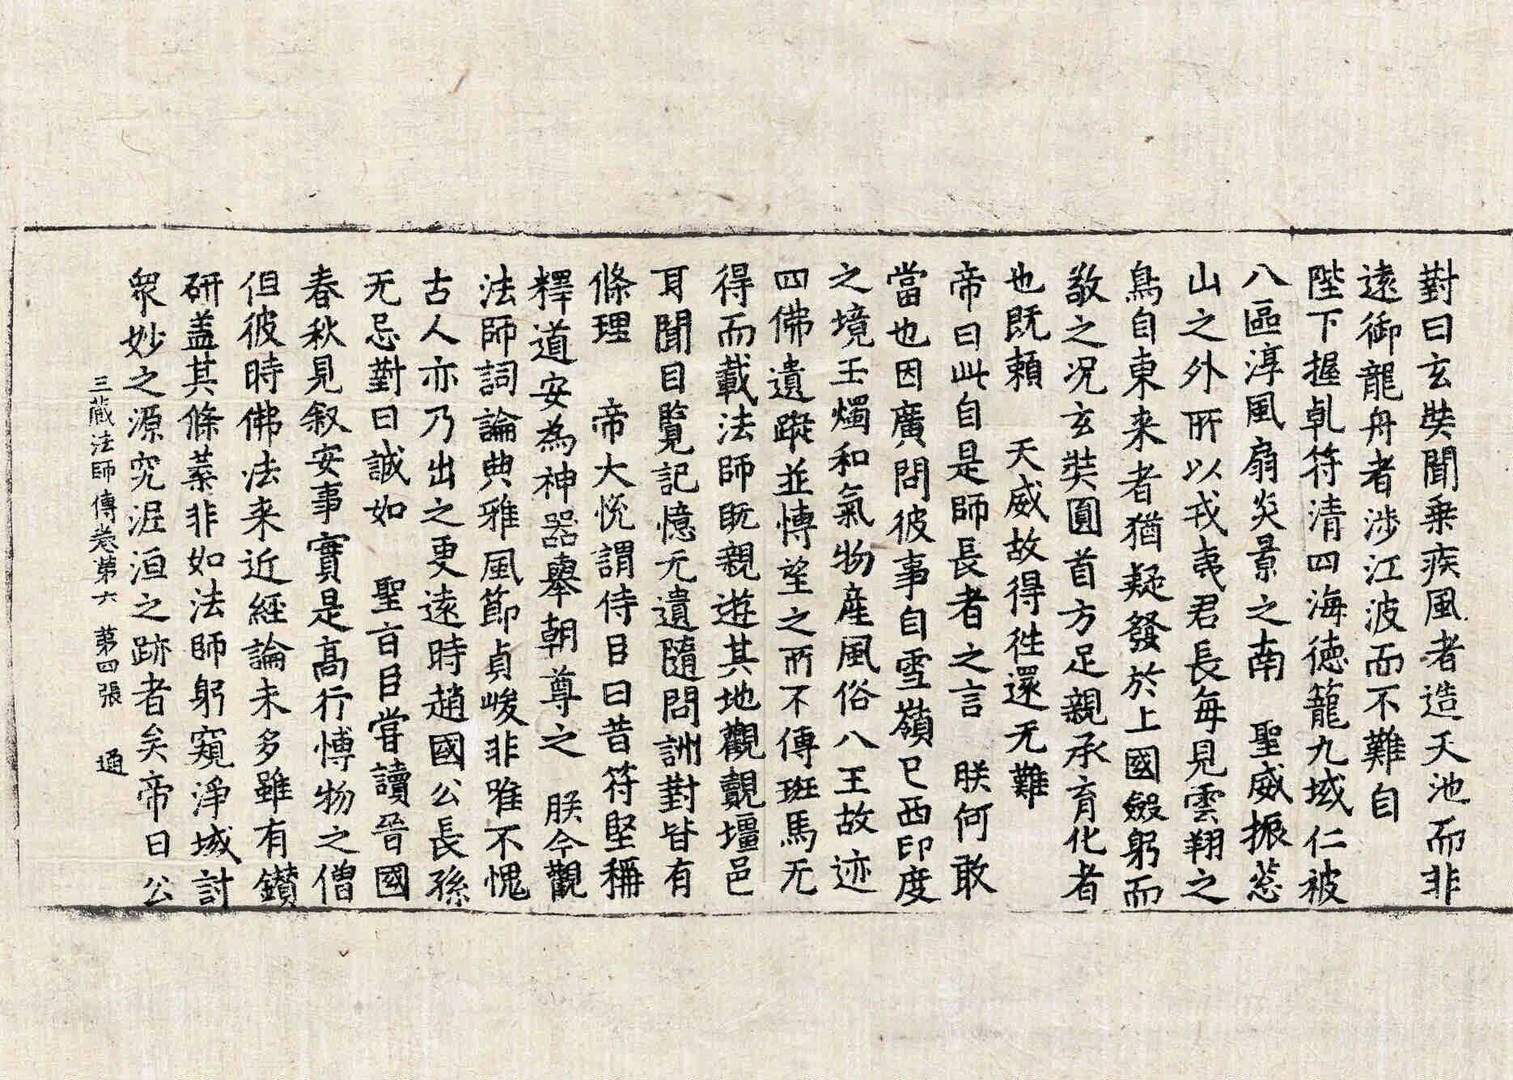 對曰玄奘聞乗疾風者造天池而非
遠御龍舟者渉江波而不難自
陛下握乹符清四海徳籠九域仁被
八區淳風扇炎景之南　聖威振葱
山之外所以戎夷君長毎見雲翔之
鳥自東来者猶疑發於上國斂躬而
敬之况玄奘圓首方足親承育化者
也既頼　天威故得徃還无難
帝曰此自是師長者之言　朕何敢
當也因廣問彼事自雪嶺已西印度
之境玉燭和氣物産風俗八王故迹
四佛遺蹤並愽望之所不傳班馬无
得而載法師既親遊其地觀覿壃邑
耳聞目覧記憶无遺隨問詶對皆有
條理　帝大恱謂侍臣曰昔符堅稱
釋道安為神器舉朝尊之　朕今觀
法師詞論典雅風節貞峻非唯不愧
古人亦乃出之更遠時趙國公長孫
无忌對曰誠如　聖㫖臣甞讀晉國
春秋見叙安事實是高行愽物之僧
但彼時佛法来近經論未多雖有鑚
研盖其條葉非如法師躬窺淨域討
衆妙之源究涅洹之跡者矣帝曰公
三藏法師傳卷第六　第四張　通